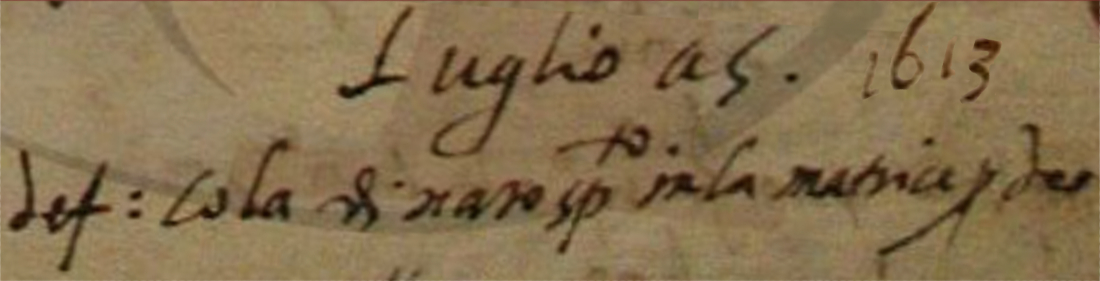 Luglio a 5. 1613
def: Cola di naro sp.to in la matrici p deo